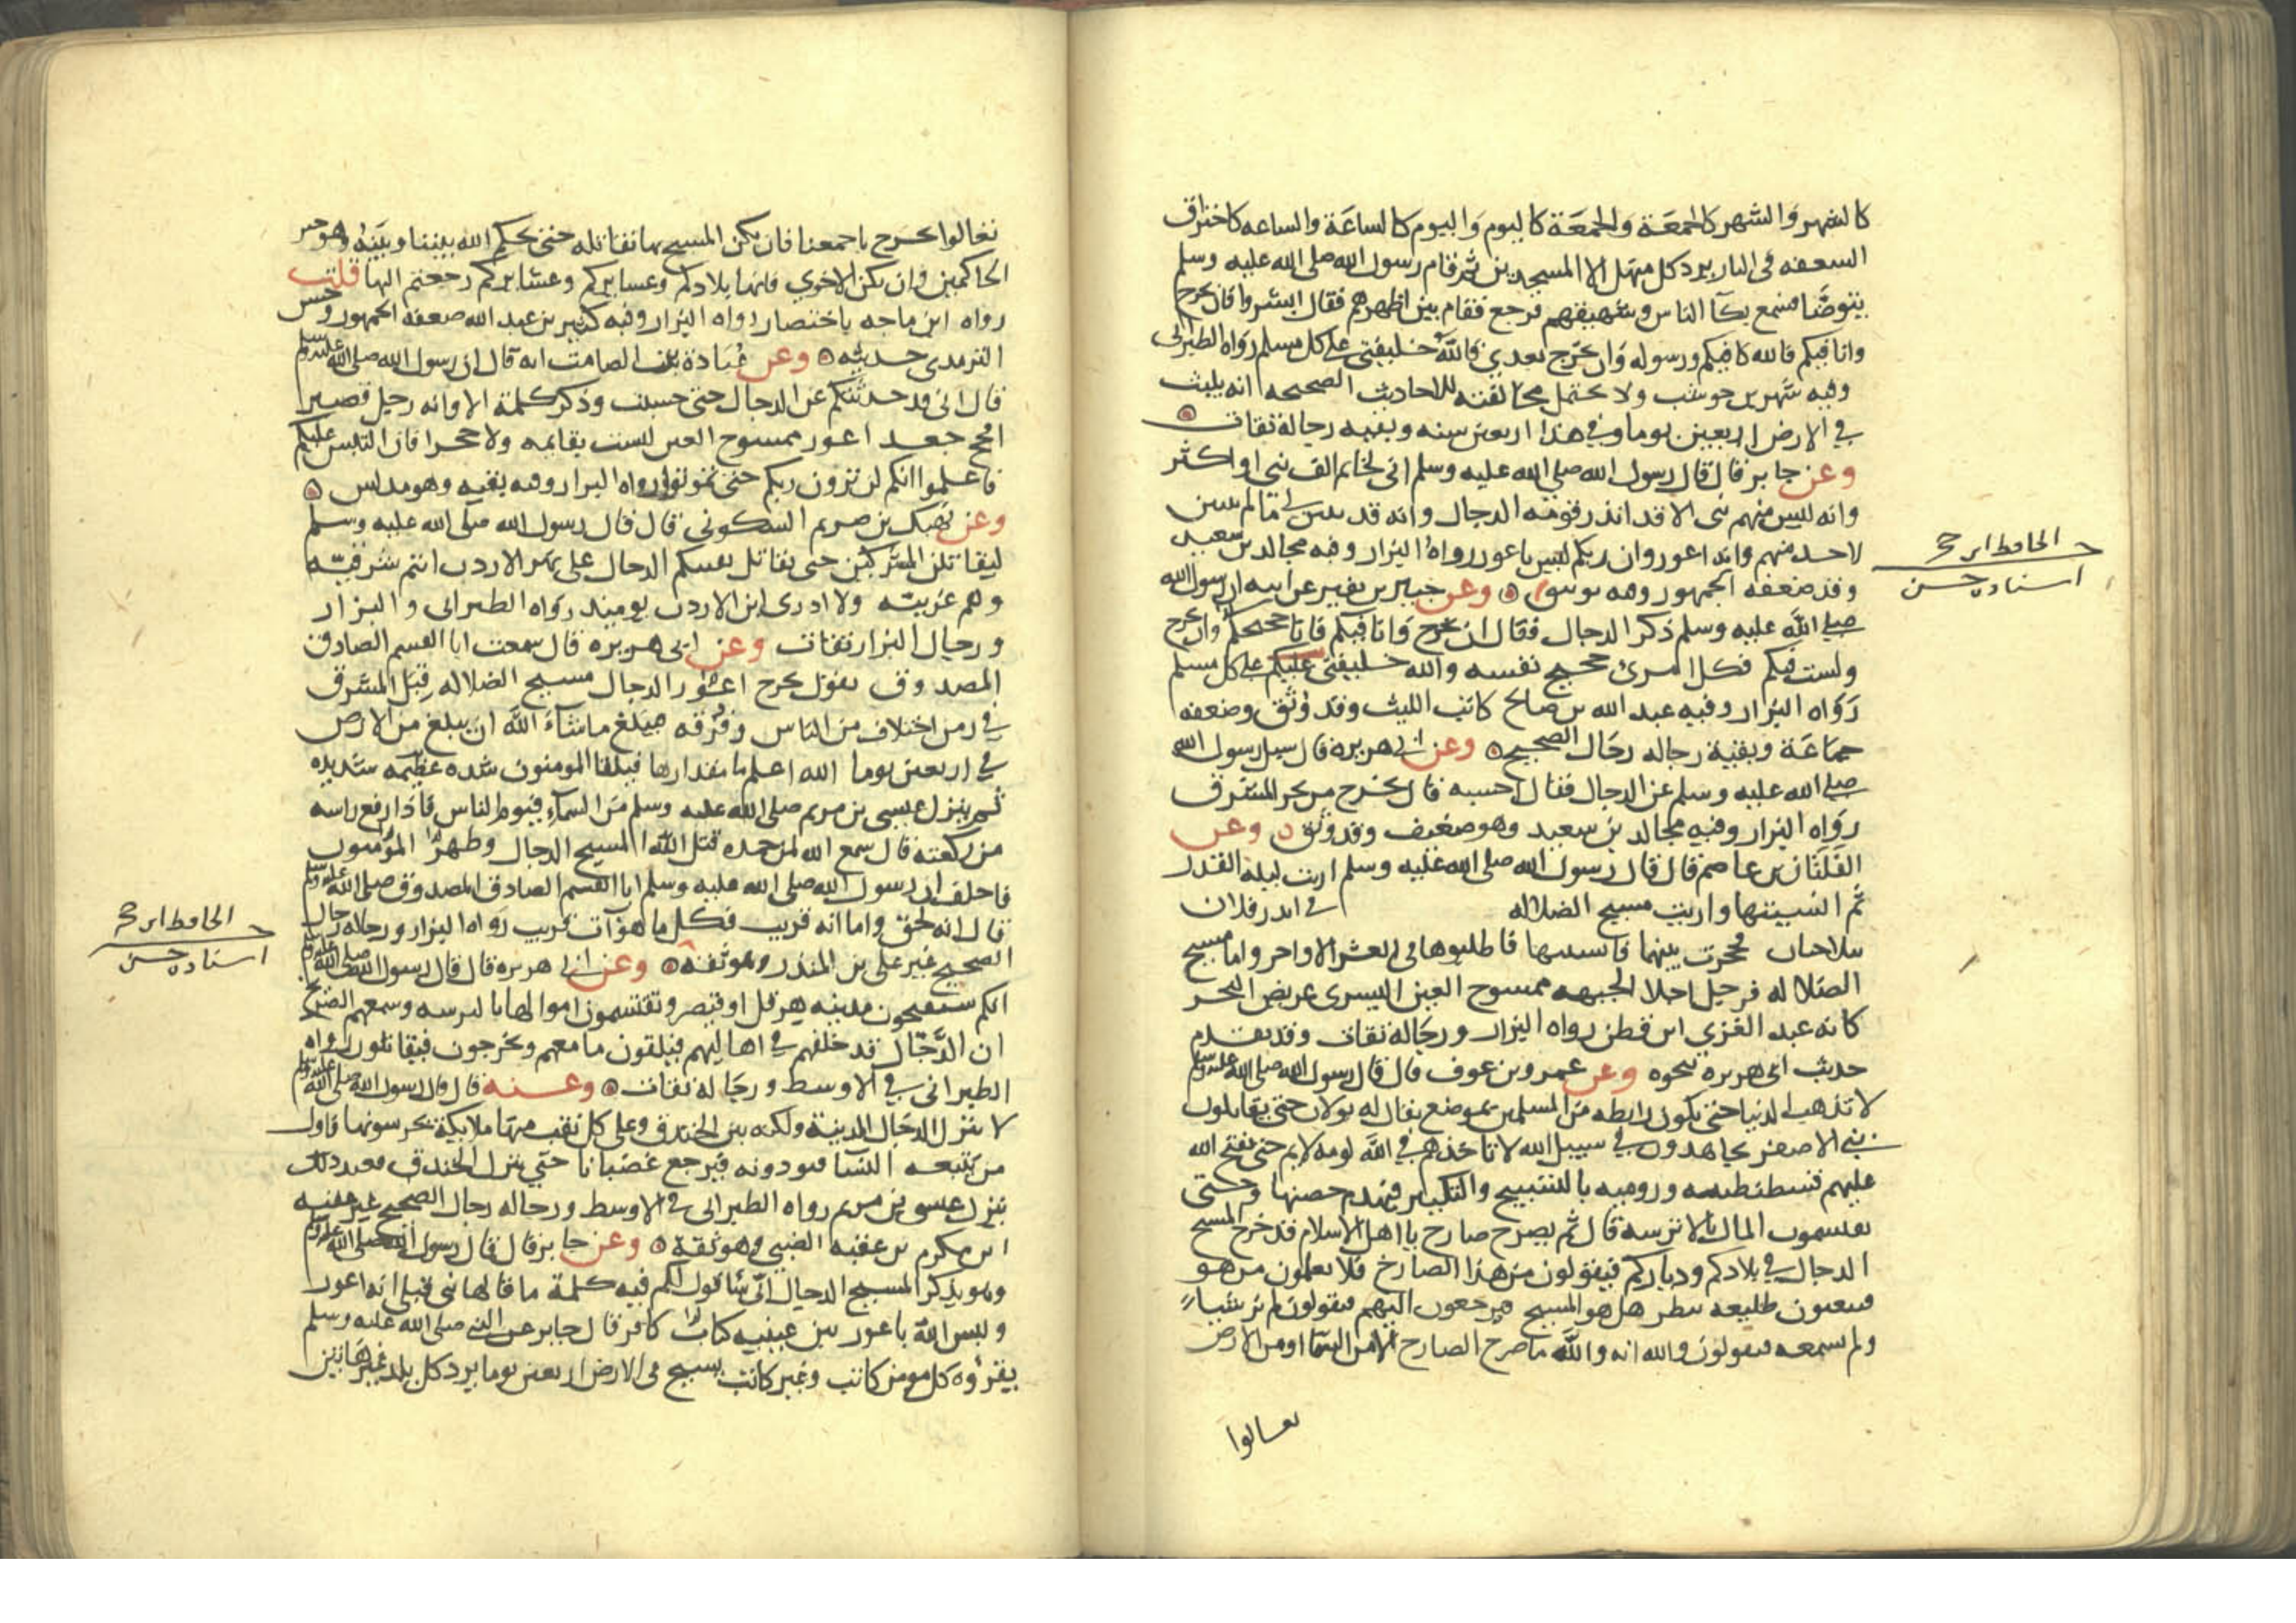 كالشهر والشهر كالجمعة والجمعة كاليوم واليوم كالساعة والساعه كاحتراق
السعفه في النار يرد كل منهل الا المسجدين ثم قام رسول الله صلى الله عليه وسلم
يتوضا فسمع بكآ الناس وشهيقهم فرجع فقام بين اظهرهم فقال ابشروا فان يخرج
وانا فيكم فالله كافيكم ورسوله وان يخرج بعدي فالله خليفتي على كل مسلم رواه الطبراني
وفيه شهر بن حوشب ولا يحتمل مخالفته للاحاديث الصحيحه انه يلبث
في الارض اربعين يوما وفي هذا اربعين سنه وبقيه رجاله ثقات
وعن جابر قال قال رسول الله صلى الله عليه وسلم اني لخاتم الف نبي او اكثر
وانه ليس منهم نبي الا قد انذر قومه الدجال وانه قد تبين لي ما لم يتبين
لاحد منهم وانه اعور وان ربكم ليس باعور رواه البزار وفيه مجالد بن سعيد
وقد ضعفه الجمهور وفيه توثيق وعن جبير بن نفير عن ابيه ان رسول الله
صلى الله عليه وسلم ذكر الدجال فقال ان يخرج وانا فيكم فانا حجيجكم وان يخرج
ولست فيكم فكل امرئ حجيج نفسه والله خليفتي عليكم على كل مسلم
رواه البزار وفيه عبد الله بن صالح كاتب الليث وقد وثق وضعفه
جماعة وبقية رجاله رجال الصحيح وعن ابي هريره قال سيل رسول الله
صلى الله عليه وسلم عن الدجال فقال احسبه قال يخرج من نحر المشرق
رواه البزار وفيه مجالد بن سعيد وهو ضعيف وقد وثق وعن
الفلتان بن عاصم قال قال رسول الله صلى الله عليه وسلم اريت ليله القدر
ثم انسيتها واريت مسيح الضلاله في اندر فلان
يتلاحيان فحجزت بينهما فانسيتها فاطلبوها في العشر الاواخر واما مسيح
الضلاله فرجل اجلا الجبهه ممسوح العين اليسرى عريض النحر
كانه عبد العزي ابن قطن رواه البزار ورجاله ثقات وقد تقدم
حديث ابي هريره نحوه وعن عمرو بن عوف قال قال رسول الله صلى الله عليه وسلم
لا تذهب الدنيا حتى تكون رابطه من المسلمين بموضع يقال له بولان حتى يقاتلون
بني الاصفر يجاهدون في سبيل الله لا تاخذهم في الله لومه لايم حتى يفتح الله
عليهم قسطنطينيه وروميه بالتسبيح والتكبير فيهدم حصنها وحتى
يقتسمون المال بالاترسه قال ثم يصرح صارح يا اهل الاسلام قد خرج المسيح
الدجال في بلادكم ودياركم فيقولون من هذا الصارخ فلا يعلمون من هو
فيبعثون طليعه ينظر هل هو المسيح فيرجعون اليهم فيقولون لم نر شيا
ولم نسمعه فيقولون والله انه والله ما صرح الصارح الا من السما او من الارض
تعالوا
الحافظ ابن حجر
اسناده حسن
تعالوا نخرج باجمعنا فان يكن المسيح بها نقاتله حتى يحكم الله بيننا وبينه وهو خير
الحاكمين وان تكن الاخري فانها بلادكم وعسايركم وعشايركم رجعتم اليها قلت
رواه ابن ماجه باختصار رواه البزار وفيه كثير بن عبد الله ضعفه الجمهور وحسن
الترمدي حديثه وعن عبادة بن الصامت انه قال ان رسول الله صلى الله عليه وسلم
قال اني قد حدثتكم عن الدجال حتى حسبت وذكر كلمة الا وانه رجل قصير
افحج جعد اعور ممسوح العين ليست بقايمه ولا جحرا فان التبس عليكم
فاعلموا انكم لن ترون ربكم حتى تموتوا رواه البزار وفيه بقيه وهو مدلس
وعن نهيك بن صريم السكوني قال قال رسول الله صلى الله عليه وسلم
ليقاتلن المشركين حتى يقاتل بقيتكم الدجال على نهر الاردن انتم شرقيه
وهم غربيه ولا ادري اين الاردن يوميذ رواه الطبراني والبزار
ورجال البزار ثقات وعن ابي هريره قال سمعت ابا القسم الصادق
المصدوق يقول يخرج اعور الدجال مسيح الضلاله قبل المشرق
في زمن اختلاف من الناس وفرقه فيبلغ ما شاء الله ان يبلغ من الارض
في اربعين يوما الله اعلم ما مقدارها فيلقا المومنون شده عظيمه شديده
ثم ينزل عيسى بن مريم صلى الله عليه وسلم من السماء فيوم الناس فاذا رفع راسه
من ركعته قال سمع الله لمن حمده قتل الله المسيح الدجال وظهر المؤمنون
فاحلف ان رسول الله صلى الله عليه وسلم ابا القسم الصادق المصدوق صلى الله عليه وسلم
قال انه لحق واما انه قريب فكل ما هو آت قريب رواه البزار ورجاله رجال
الصحيح غير علي بن المنذر وهو ثقه وعن ابي هريره قال قال رسول الله صلى الله عليه وسلم
انكم ستفتحون مدينه هرقل او قيصر وتقتسمون اموالها بالترسه ويسمعهم الصريخ
ان الدجال قد خلفهم في اهاليهم فيلقون ما معهم ويخرجون فيقاتلون رواه
الطبراني في الاوسط ورجاله ثقات وعنه قال قال رسول الله صلى الله عليه وسلم
لا ينزل الدجال المدينة ولكنه بين الخندق وعلى كل نقب منها ملايكة يحرسونها فاول
من يتبعه النسا فيودونه فيرجع غضبانا حتي ينزل الخندق فعند ذلك
ينزل عيسى بن مريم رواه الطبراني في الاوسط ورجاله رجال الصحيح غير عقبه
ابن مكرم بن عقبه الضبي وهو ثقة وعن جابر قال قال رسول الله صلى الله عليه وسلم
وهو يذكر المسيح الدجال اني ساقول لكم فيه كلمة ما قالها نبي قبلي انه اعور
وليس الله باعور بين عينيه كتاب كافر قال جابر عن النبي صلى الله عليه وسلم
يقرؤه كل مومن كاتب وغير كاتب يسيح في الارض اربعين يوما يرد كل بلد غير هاتين
الحافظ ابن حجر
اسناده حسن